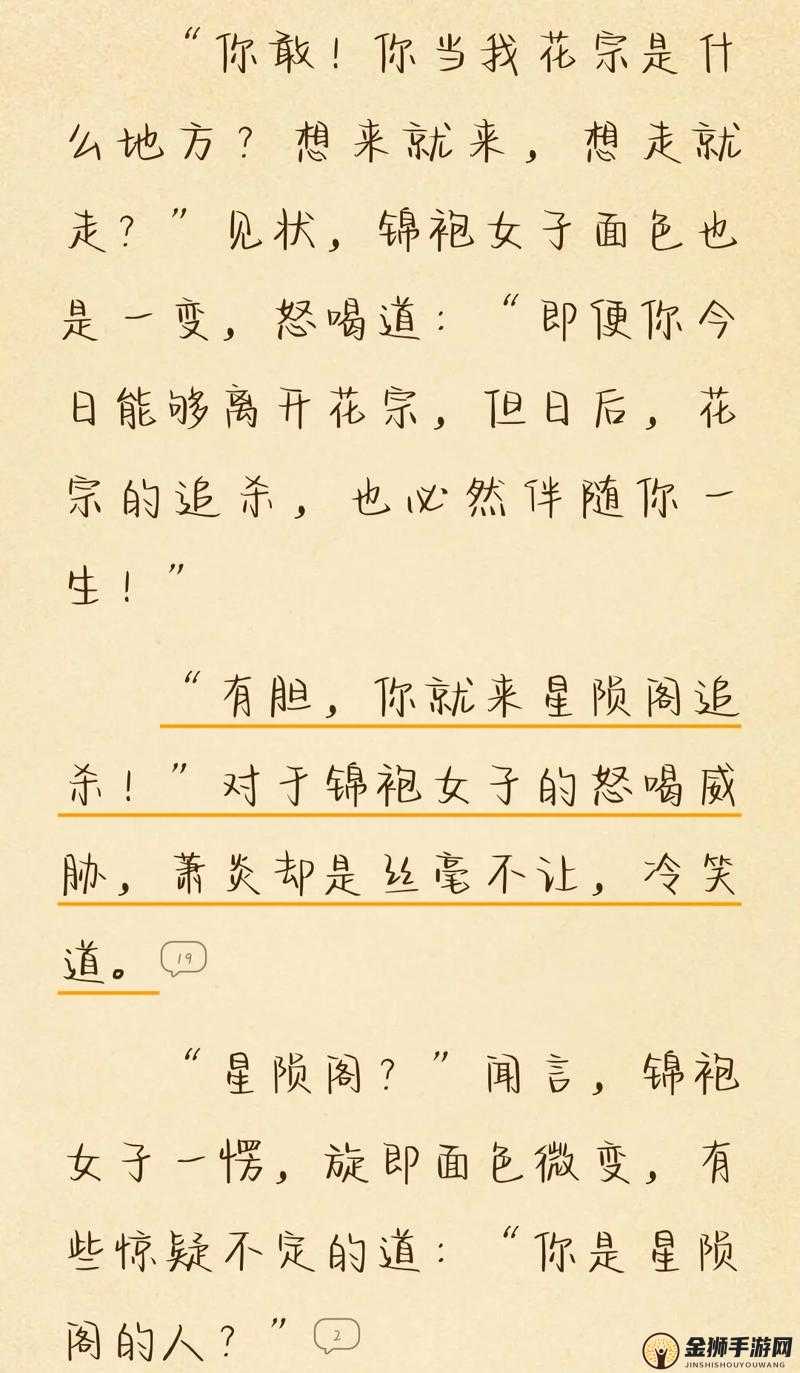 “你敢！你当我花宗是什
么地方？想来就来，想走就
走？”见状，锦袍女子面色也
是一变，怒喝道：“即便你今
日能够离开花宗，但日后，花
宗的追杀，也必然伴随你一
生！”
“有胆，你就来星陨阁追
杀！”对于锦袍女子的怒喝威
胁，萧炎却是丝毫不让，冷笑
道。 19
“星陨阁？”闻言，锦袍
女子一愣，旋即面色微变，有
些惊疑不定的道：“你是星陨
阁的人？” 2
金狮手游网
JINSHISHOUYOUWANG